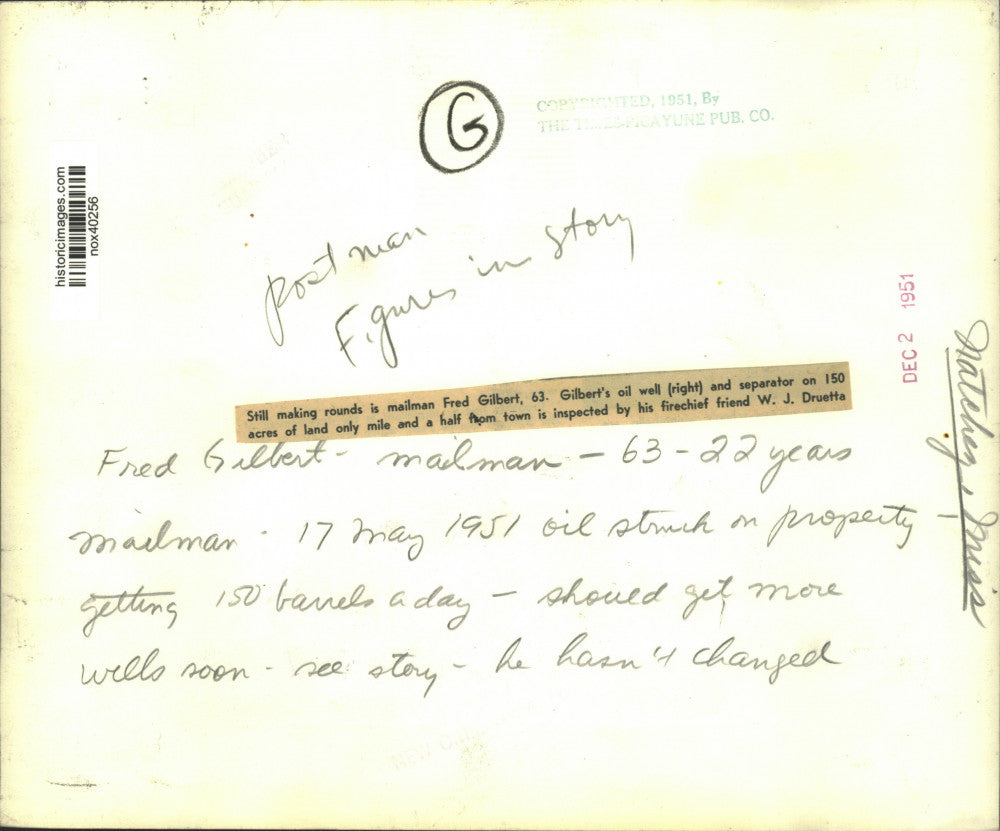 G
COPYRIGHTED, 1951, By
THE TIMES-PICAYUNE PUB. CO.
historicimages.com
nox40256
postman
Figures in story
DEC 2 1951
Natchez, Miss
Still making rounds is mailman Fred Gilbert, 63. Gilbert's oil well (right) and separator on 150
acres of land only mile and a half from town is inspected by his firechief friend W. J. Druetta
Fred Gilbert - mailman - 63 - 22 years
mailman - 17 May 1951 oil struck on property -
getting 150 barrels a day - should get more
wells soon - see story - he hasn't changed